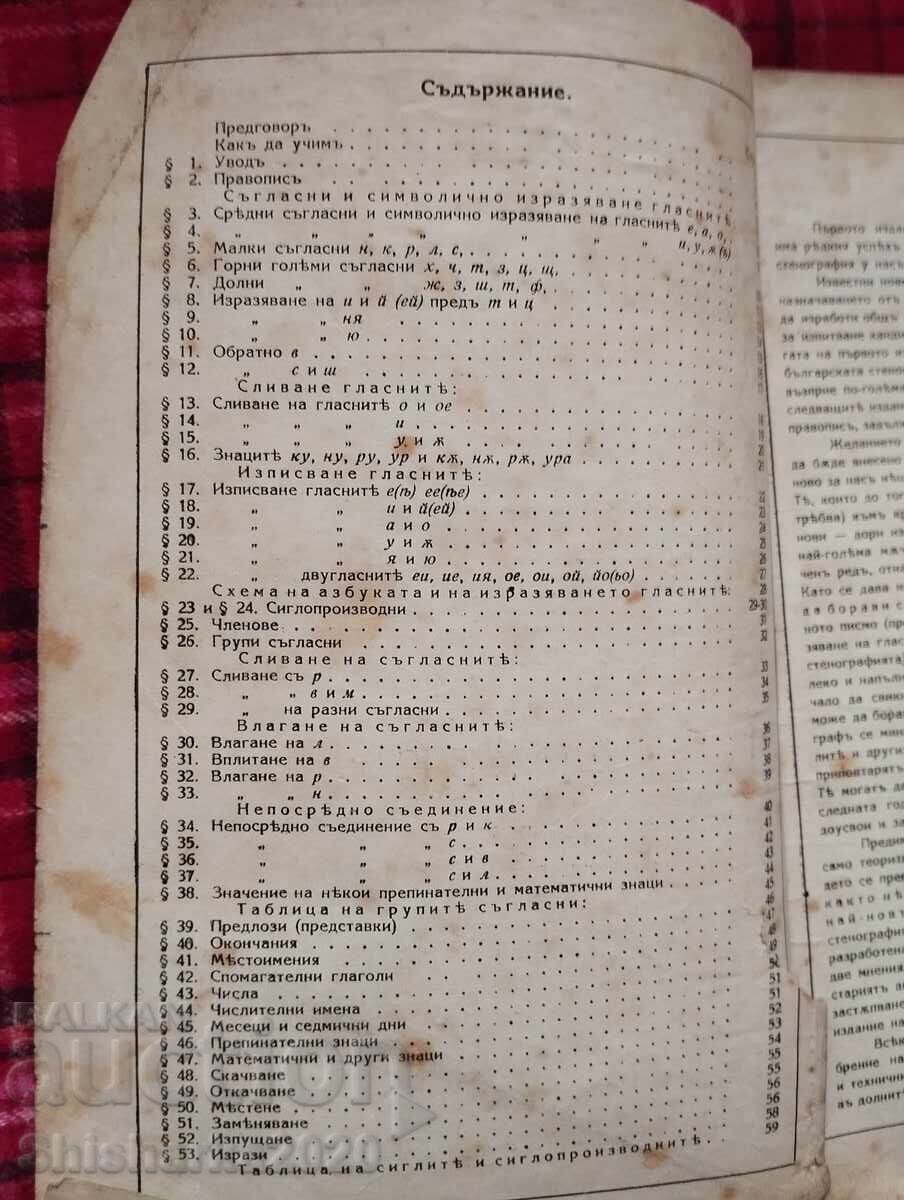 Съдържание.
Предговоръ
Какъ да учимъ
§ 1. Уводъ
§ 2. Правописъ
Съгласни и символично изразяване гласнитѣ
§ 3. Срѣдни съгласни и символично изразяване на гласнитѣ е, а, о,
§ 4. „ „ „ „ „ „ „ и, у, ѫ (ъ)
§ 5. Малки съгласни н, к, р, л, с,
§ 6. Горни голѣми съгласни х, ч, т, з, ц, щ,
§ 7. Долни „ „ ж, з, ш, т, ф,
§ 8. Изразяване на и и й (ей) предъ т и ц
§ 9. „ „ ня
§ 10. „ „ ю
§ 11. Обратно в
§ 12. „ с и ш
Сливане гласнитѣ:
§ 13. Сливане на гласнитѣ о и ое
§ 14. „ „ „ и
§ 15. „ „ „ у и ѫ
§ 16. Знацитѣ ку, ну, ру, ур и кѫ, нѫ, рѫ, ура 21
Изписване гласнитѣ:
§ 17. Изписване гласнитѣ е(ѣ) ее(ѣе) 22
§ 18. „ „ и и й(ей) 23
§ 19. „ „ а и о 24
§ 20. „ „ у и ѫ 25
§ 21. „ „ я и ю 26
§ 22. „ двугласнитѣ еи, ие, ия, ое, ои, ой, йо(ьо) 27
Схема на азбуката и на изразяването гласнитѣ: 28
§ 23 и § 24. Сиглопроизводни 29-30
§ 25. Членове 31
§ 26. Групи съгласни 32
Сливане на съгласнитѣ:
§ 27. Сливане съ р 33
§ 28. „ „ в и м 34
§ 29. „ на разни съгласни 35
Влагане на съгласнитѣ:
§ 30. Влагане на л 36
§ 31. Вплитане на в 37
§ 32. Влагане на р 38
§ 33. „ „ н 39
Непосрѣдно съединение:
§ 34. Непосрѣдно съединение съ р и к 40
§ 35. „ „ „ с 41
§ 36. „ „ „ с и в 42
§ 37. „ „ „ с и л 43
§ 38. Значение на нѣкои препинателни и математични знаци 44
Таблица на групитѣ съгласни: 45
§ 39. Предлози (представки) 46
§ 40. Окончания 47
§ 41. Мѣстоимения
§ 42. Спомагателни глаголи
§ 43. Числа
§ 44. Числителни имена 51
§ 45. Месеци и седмични дни 51
§ 46. Препинателни знаци 52
§ 47. Математични и други знаци 53
§ 48. Скачване 54
§ 49. Откачване 55
§ 50. Мѣстене 55
§ 51. Замѣняване 56
§ 52. Изпущане 56
§ 53. Изрази 58
Таблица на сиглитѣ и сиглопроизводнитѣ. 59
Първото изда
има рѣдкия успѣхъ
стенография у насъ
Известни нов
назначаването отъ
да изработи общъ
за изпитване канди
гата на първото и
българската стено
възприе по-голѣм
следващитѣ издан
правопись, задълж
Желанието
да бѫде внесено
ново за насъ нѣщ
Тѣ, които до тог
трѣбва) къмъ вр
нови — дори из
най-голѣма мѫч
ченъ редъ, отна
Като се дава н
да борави с
ното писмо (пр
зяване на глас
стенографията)
леко и напълн
чало да свикн
може да бора
графъ се мин
литѣ и други
приповтарятъ
Тѣ могатъ де
следната го
доусвои и за
Преди
само теориз
дето се пре
както нѣ
най-новт
стенографи
разработен
две мнения
стариятъ а
застѫпване
издание на
Всѣк
брение на
и техничн
въ долнит
BALKAN
auction
Shishi 2020